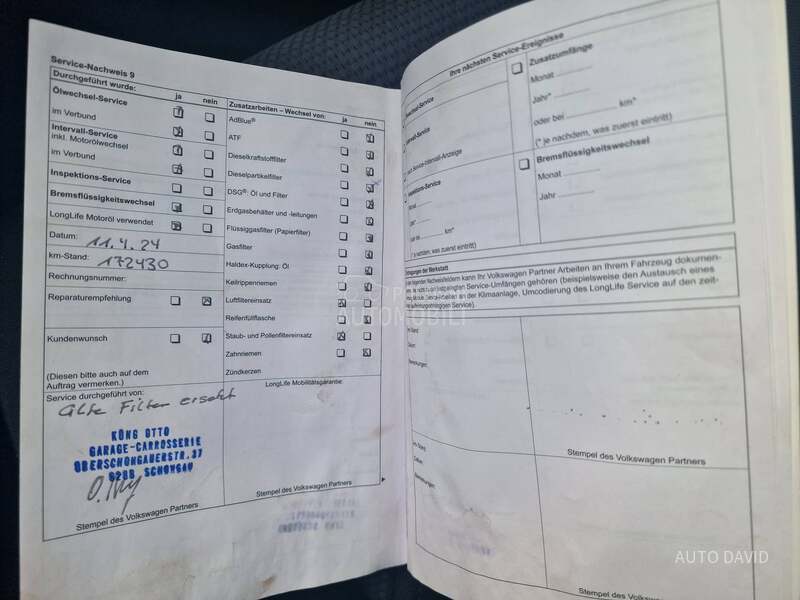 Service-Nachweis 9
Durchgeführt wurde:
ja nein
Ölwechsel-Service
im Verbund
Intervall-Service
inkl. Motorölwechsel
im Verbund
Inspektions-Service
Bremsflüssigkeitswechsel
LongLife Motoröl verwendet
Datum: 11.4.24
km-Stand: 172430
Rechnungsnummer:
Reparaturempfehlung
Kundenwunsch
(Diesen bitte auch auf dem
Auftrag vermerken.)
Service durchgeführt von:
alle Filter ersetzt
KÜNG OTTO
GARAGE-CARROSSERIE
OBERSCHONGAUERSTR.37
6288 SCHONGAU
Stempel des Volkswagen Partners
Zusatzarbeiten – Wechsel von: ja nein
AdBlue®
ATF
Dieselkraftstofffilter
Dieselpartikelfilter
DSG®: Öl und Filter
Erdgasbehälter und -leitungen
Flüssiggasfilter (Papierfilter)
Gasfilter
Haldex-Kupplung: Öl
Keilrippenriemen
Luftfiltereinsatz
Reifenfüllflasche
Staub- und Pollenfiltereinsatz
Zahnriemen
Zündkerzen
LongLife Mobilitätsgarantie:
Stempel des Volkswagen Partners
Ihre nächsten Service-Ereignisse
Zusatzumfänge
Monat
Jahr*
oder bei km*
(* je nachdem, was zuerst eintritt)
Bremsflüssigkeitswechsel
Monat
Jahr
km*
Volkswagen Partner Arbeiten an Ihrem Fahrzeug dokumen-
Service-Umfängen gehören (beispielsweise den Austausch eines
an der Klimaanlage, Umcodierung des LongLife Service auf den zeit-
Stempel des Volkswagen Partners
Stempel des Volkswagen Partners
AUTOMOBILI
AUTO DAVID